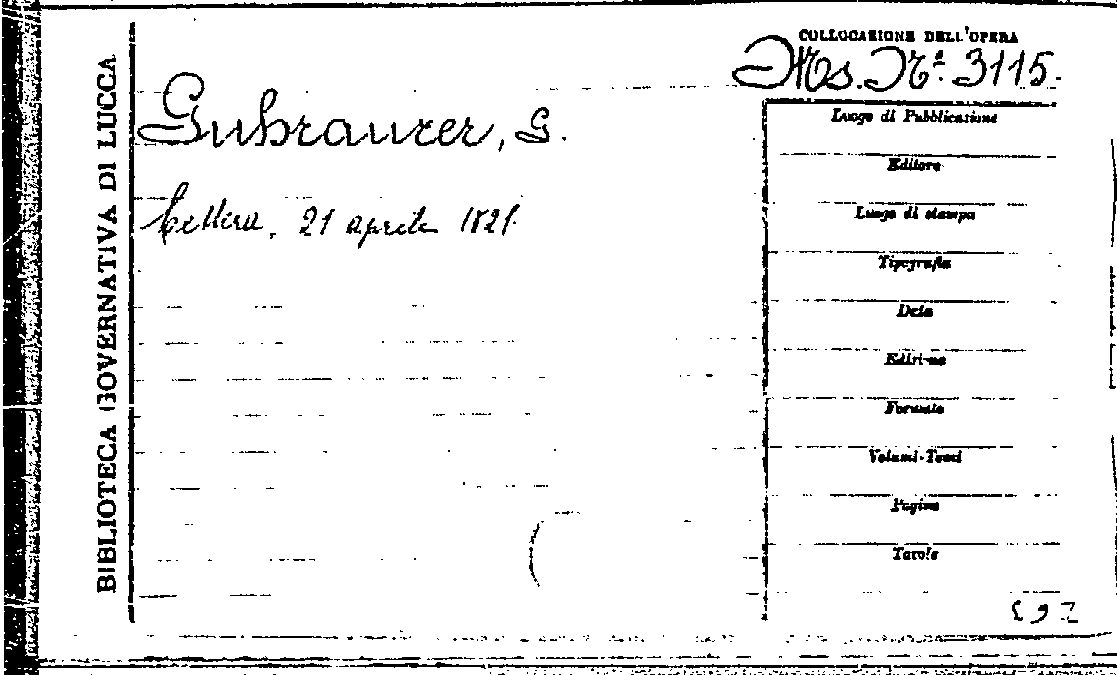 BIBLIOTECA GOVERNATIVA DI LUCCA
COLLOCAZIONE DELL'OPERA
Ms. Nº. 3115.
Guhrauer, G.
Lettera, 21 aprile 1821.
Luogo di Pubblicazione
Editore
Luogo di stampa
Tipografia
Data
Edizione
Formato
Volumi-Tomi
Pagine
Tavole